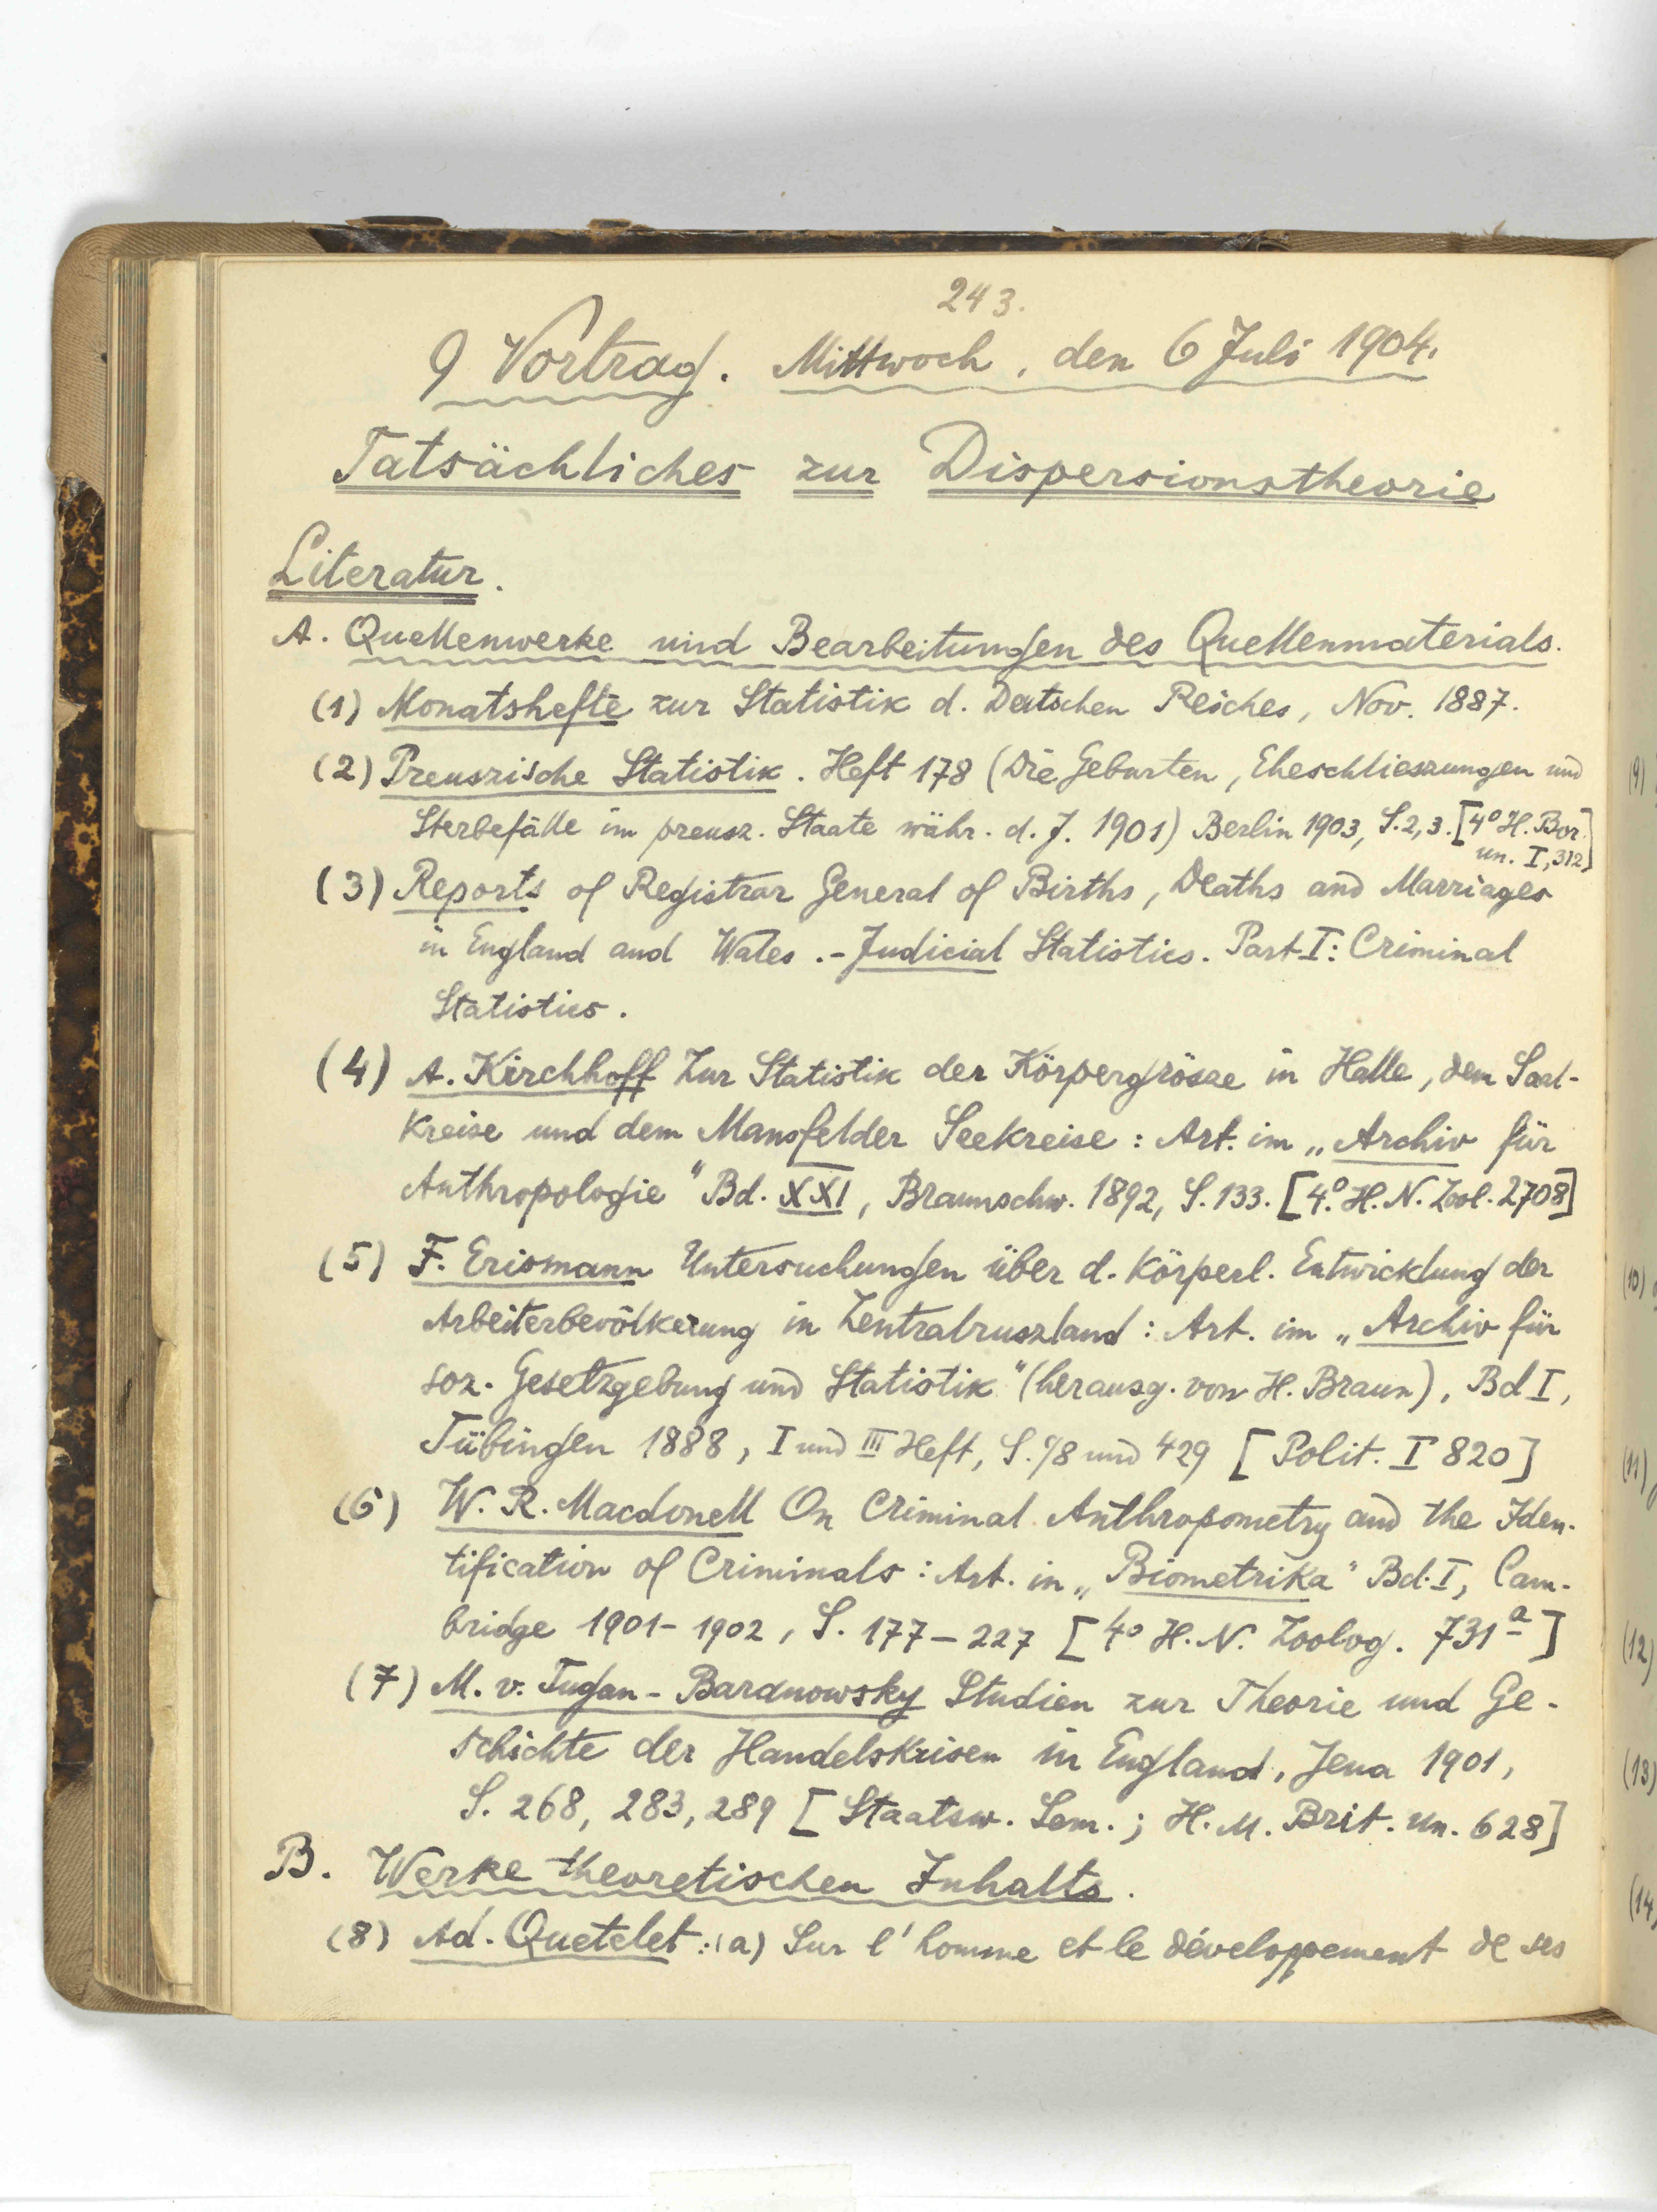 243.
9 Vortrag. Mittwoch, den 6 Juli 1904.
Tatsächliches zur Dispersionstheorie
Literatur.
A. Quellenwerke und Bearbeitungen des Quellenmaterials.
(1) Monatshefte zur Statistik d. Deutschen Reiches, Nov. 1887.
(2) Preuszische Statistik. Heft 178 (Die Geburten, Eheschlieszungen und
Sterbefälle im preusz. Staate währ. d. J. 1901) Berlin 1903, S. 2, 3. [4° H. Bor.
un. I, 312]
(3) Reports of Registrar General of Births, Deaths and Marriages
in England and Wales. - Judicial Statistics. Part I: Criminal
Statistics.
(4) A. Kirchhoff Zur Statistik der Körpergrösze in Halle, dem Saal-
kreise und dem Mansfelder Seekreise: Art. im „Archiv für
Anthropologie" Bd. XXI, Braunschw. 1892, S. 133. [4° H. N. Zool. 2708]
(5) F. Erismann Untersuchungen über d. körperl. Entwicklung der
Arbeiterbevölkerung in Zentralruszland: Art. im „Archiv für
soz. Gesetzgebung und Statistik" (herausg. von H. Braun), Bd I,
Tübingen 1888, I und III Heft, S. und 429 [Polit. I 820]
(6) W. R. Macdonell On Criminal Anthropometry and the Iden-
tification of Criminals: Art. in „Biometrika" Bd. I, Cam-
bridge 1901-1902, S. 177-227 [4° H. N. Zoolog. 731 a]
(7) M. v. Tugan-Baranowsky Studien zur Theorie und Ge-
schichte der Handelskrisen in England, Jena 1901,
S. 268, 283, 289 [Staatsw. Sem.; H. M. Brit. un. 628]
B. Werke theoretischen Inhalts.
(8) Ad. Quetelet: (a) Sur l'homme et le développement de ses
(9)
(10)
(11)
(12)
(13)
(14)